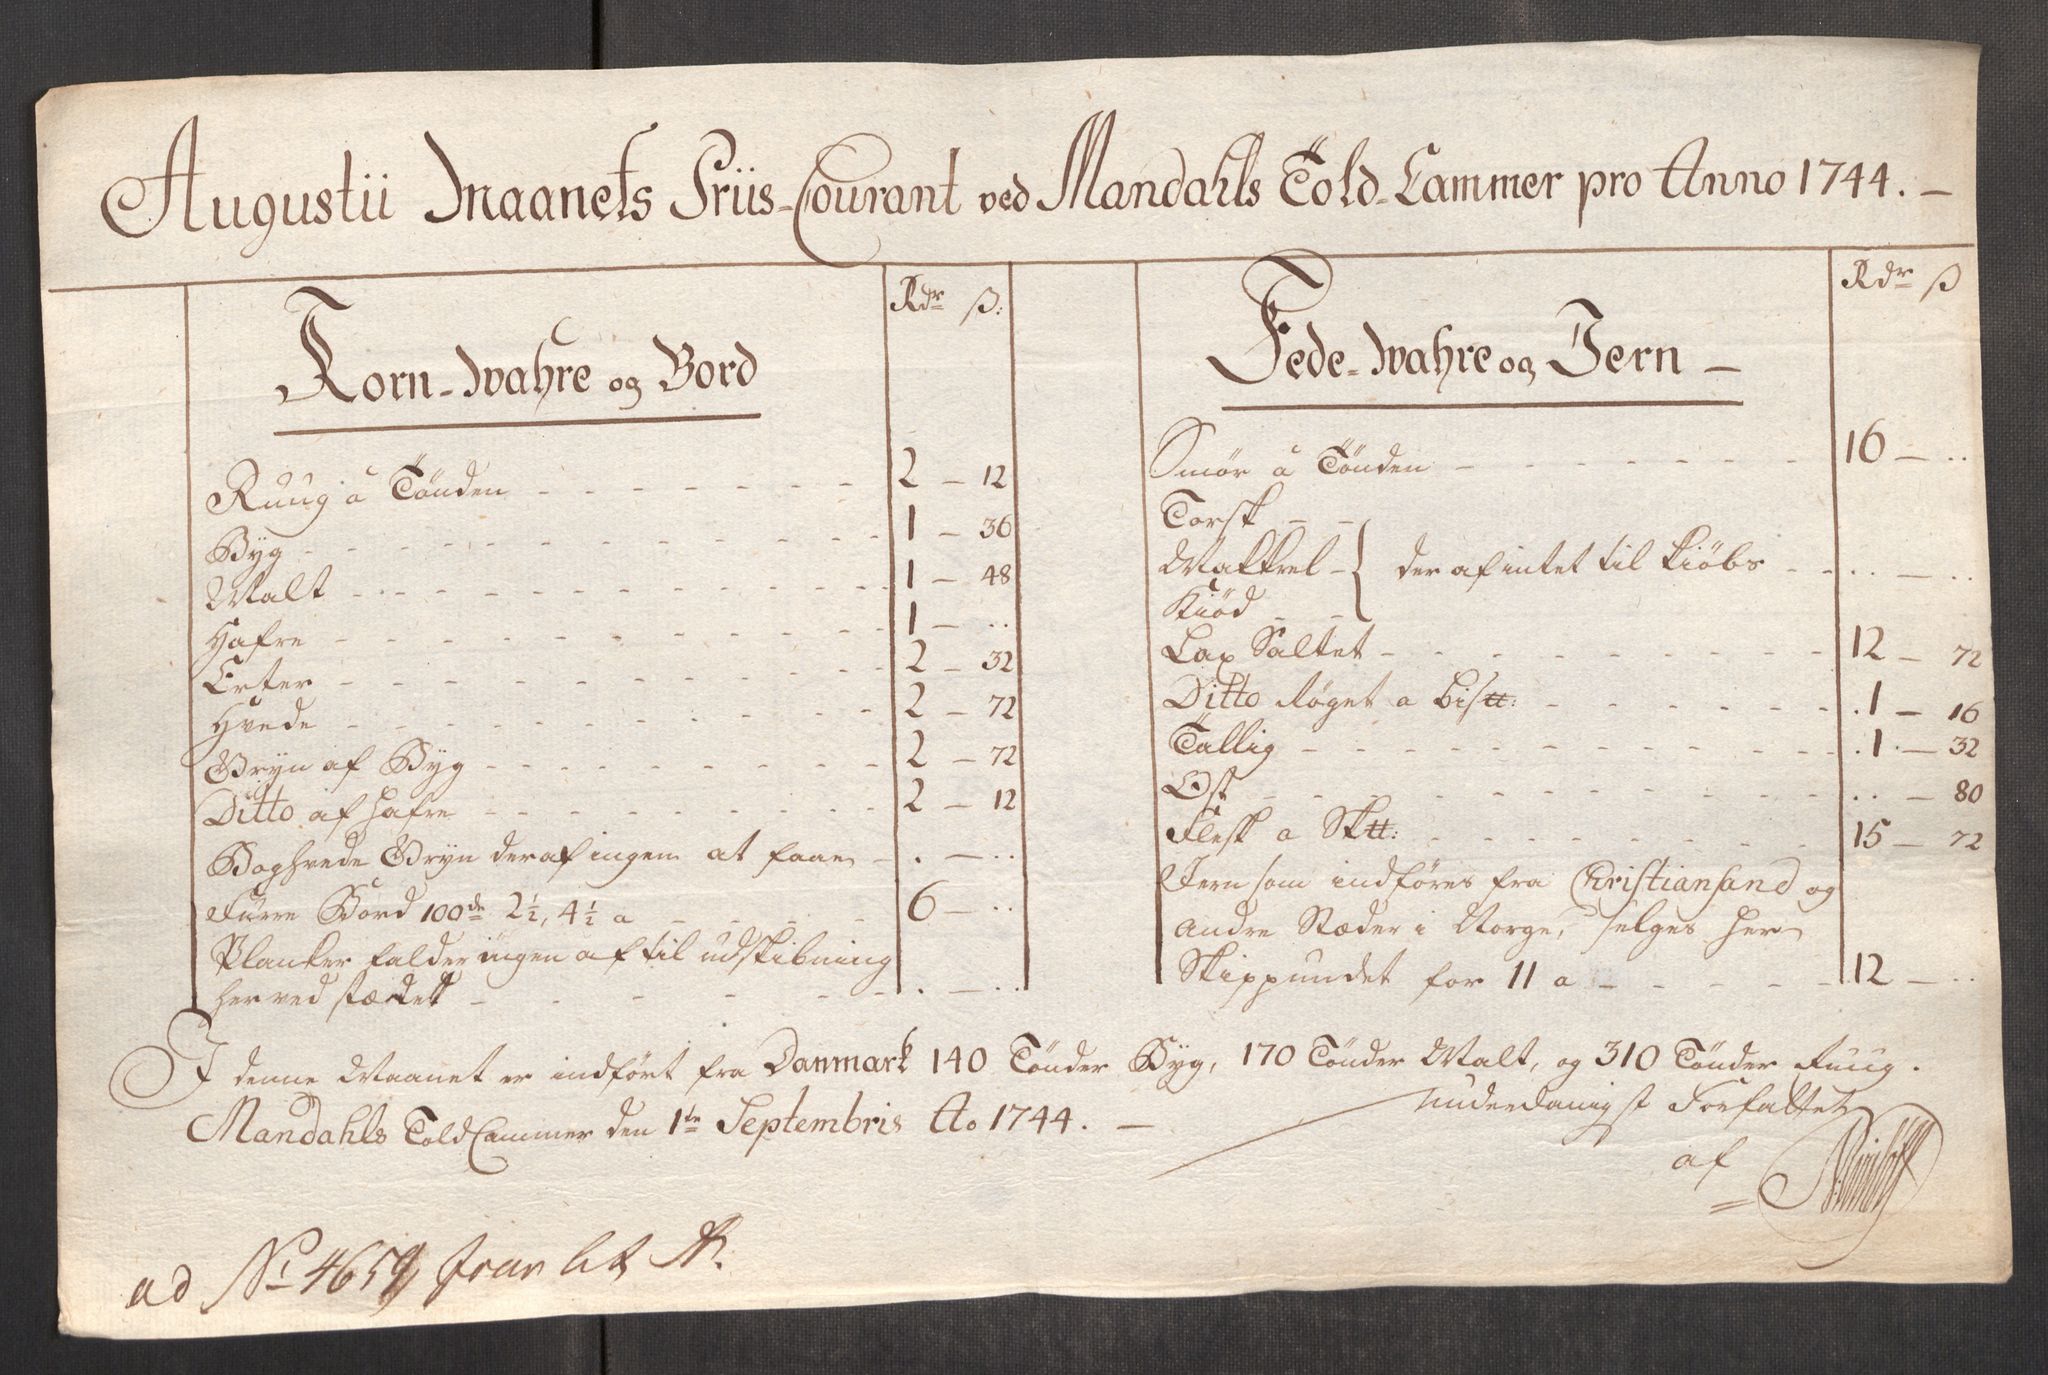 Augustii Maanets Priis-Courant ved Mandahls Told-Cammer pro Anno 1744. —
Rdr ß:
Korn-Wahre og Bord
Ruug a Tönden - - - - - - 2 — 12
Byg - - - - - - - - - 1 — 36
Malt - - - - - - - - - 1 — 48
Hafre - - - - - - - - - 1 — ..
Erter - - - - - - - - - 2 — 32
Hvede - - - - - - - - - 2 — 72
Gryn af Byg - - - - - - - 2 — 72
Ditto af Hafre - - - - - - - 2 — 12
Boghvede Gryn deraf ingen at faae - . — ..
Fürre Bord 100de 2½, 4½ a - - - - 6 — ..
Planker falder ingen af til udskibning
her ved stædet - - - - - - - . — ..
Rdr ß
Fede-Wahre og Jern —
Smör a Tönden - - - - - - - 16 — ..
Torsk - -
Makkrel - { der af intet til kiöbs - - .. — ..
Kiöd - -
Lax Saltet - - - - - - - - 12 — 72
Ditto Röget a bis℔: - - - - - - .1 — 16
Tallig - - - - - - - - - .1. — 32
Ost - - - - - - - - - - .. — 80
Flesk a Sk℔: - - - - - - - 15 — 72
Jern som indföres fra Christiansand og
andre Stæder i Norge, selges her
Skippundet for 11 a - - - - - 12 — ..
I denne Maanet er indfört fra Danmark 140 Tönder Byg, 170 Tönder Malt, og 310 Tönder Ruug.
Mandahls Told Cammer den 1te Septembris Ao 1744. —
underdanigst Forfattet
af
ad No 4659